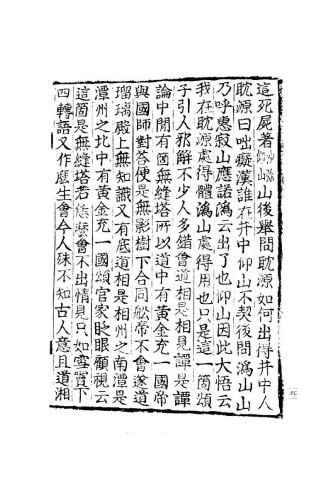 這死屍著沙彌仰山山後舉問耽源如何出得井中人
耽源曰咄癡漢誰在井中仰山不契後問溈山山
乃呼惠寂山應諾溈云出了也仰山因此大悟云
我在耽源處得體溈山處得用也只是這一箇頌
子引人邪解不少人多錯會道相是相見譚是譚
論中間有箇無縫塔所以道中有黃金充一國帝
與國師對答便是無影樹下合同船帝不會遂道
瑠璃殿上無知識又有底道相是相州之南潭是
潭州之北中有黃金充一國頌官家眨眼顧視云
這箇是無縫塔若恁麼會不出情見只如雪竇下
四轉語又作麼生會今人殊不知古人意且道湘